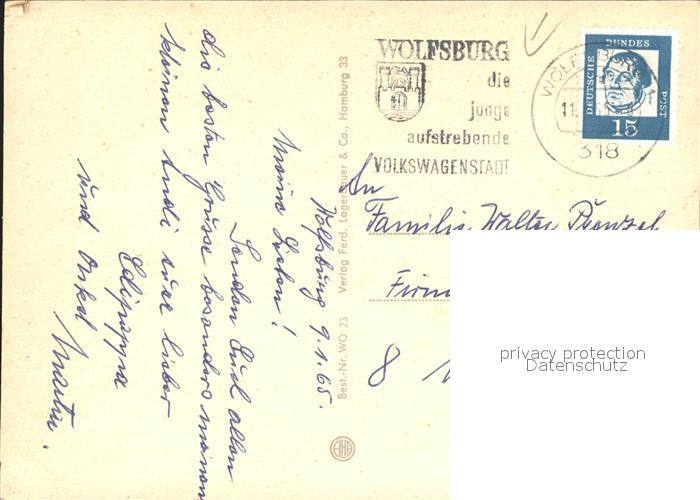 WOLFSBURG
die
junge
aufstrebende
VOLKSWAGENSTADT
WOLFSBURG
11.
318
DEUTSCHE
BUNDES
POST
15
An
Familie Walter
8
privacy protection
Datenschutz
Best.-Nr. WO 23 Verlag Ferd. Lagerbauer & Co., Hamburg 33
Wolfsburg 9.1.65.
Meine Lieben!
Senden Euch allen
die besten Grüsse besonders meinem
kleinen Andi eure lieber
und Onkel
Martin.